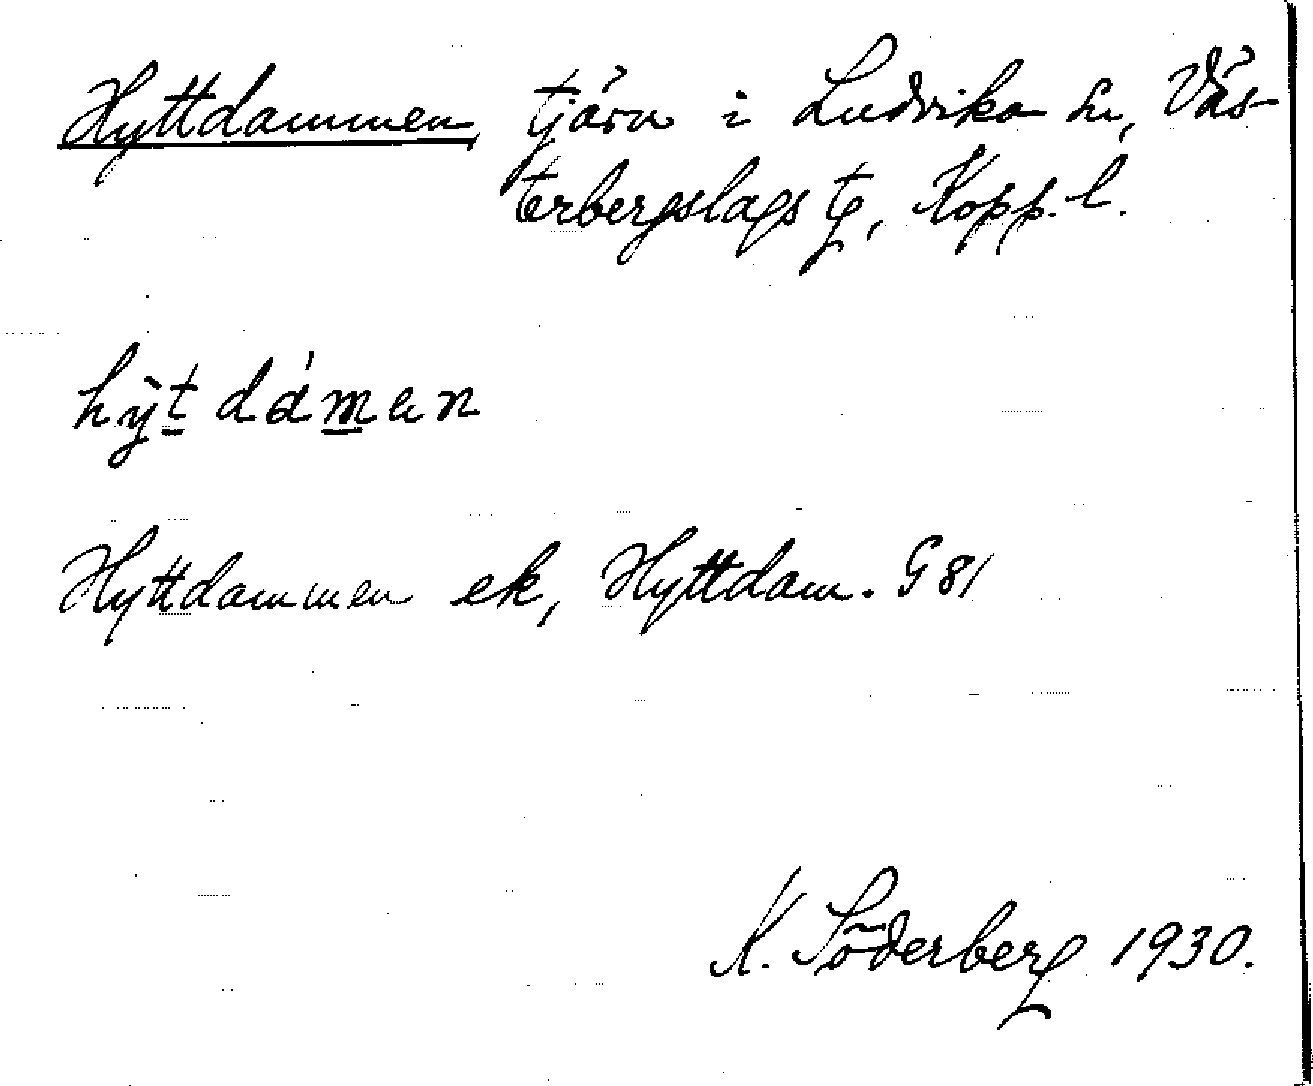 Hyttdammen, tjärn i Ludvika sn, Väs-
terbergslags tg, Kopp. l.
hỳt dámen
Hyttdammen ek, Hyttdam. G 81
K. Söderberg 1930.